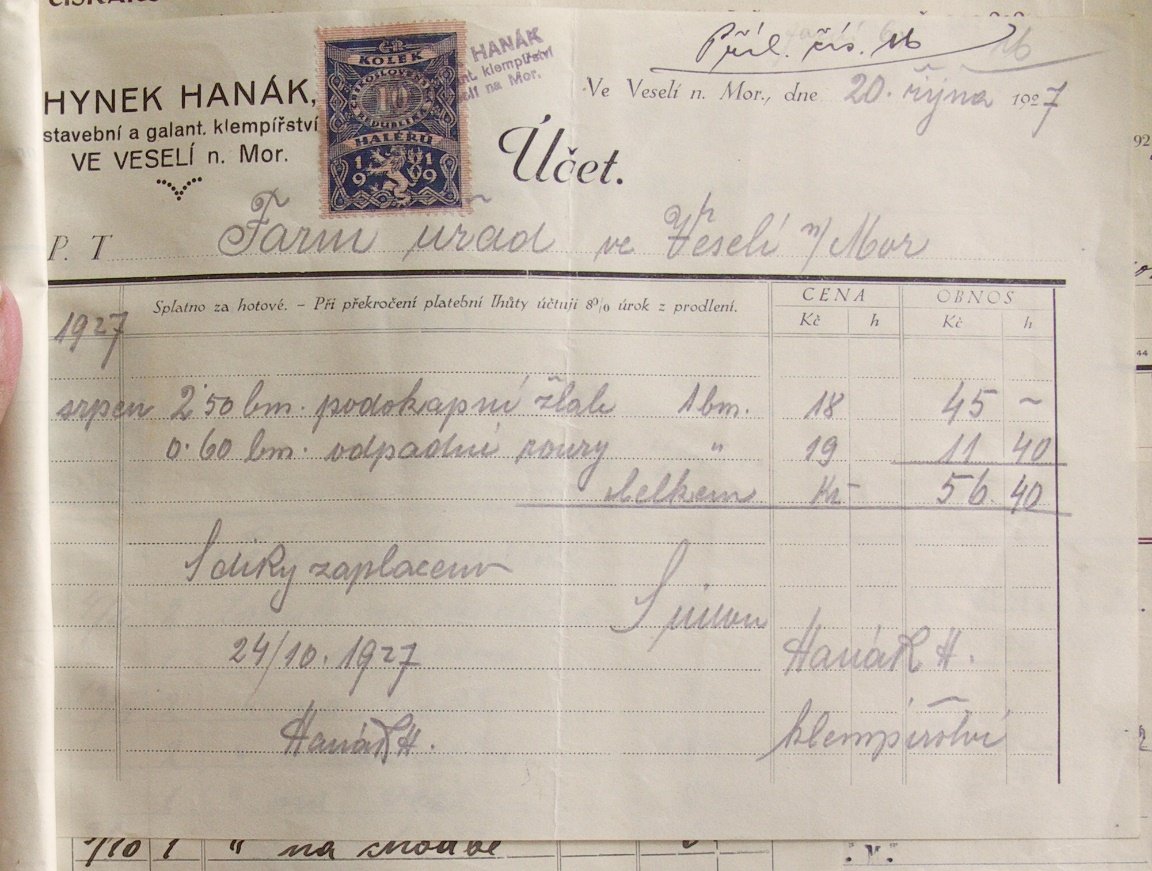 Příl. čís. 16
HYNEK HANÁK,
stavební a galant. klempířství
VE VESELÍ n. Mor.
KOLEK
ČESKOSLOVENSKÁ
10
REPUBLIKA
HALÉŘŮ
1919
HANÁK
ant. klempířství
elí na Mor.
Ve Veselí n. Mor., dne 20. října 1927
Účet.
P. T Farní úřad ve Veselí n/Mor
Splatno za hotové. – Při překročení platební lhůty účtuji 8% úrok z prodlení.
CENA OBNOS
Kč h Kč h
1927
srpen 2·50 bm. podokapní žlab 1 bm. 18 45 ~
0·60 bm. odpadní roury " 19 11 40
Celkem Kč 56 40
S díky zaplaceno
24/10. 1927
Hanák H.
Hanák H.
klempířství
1/10 1 " na chodbě